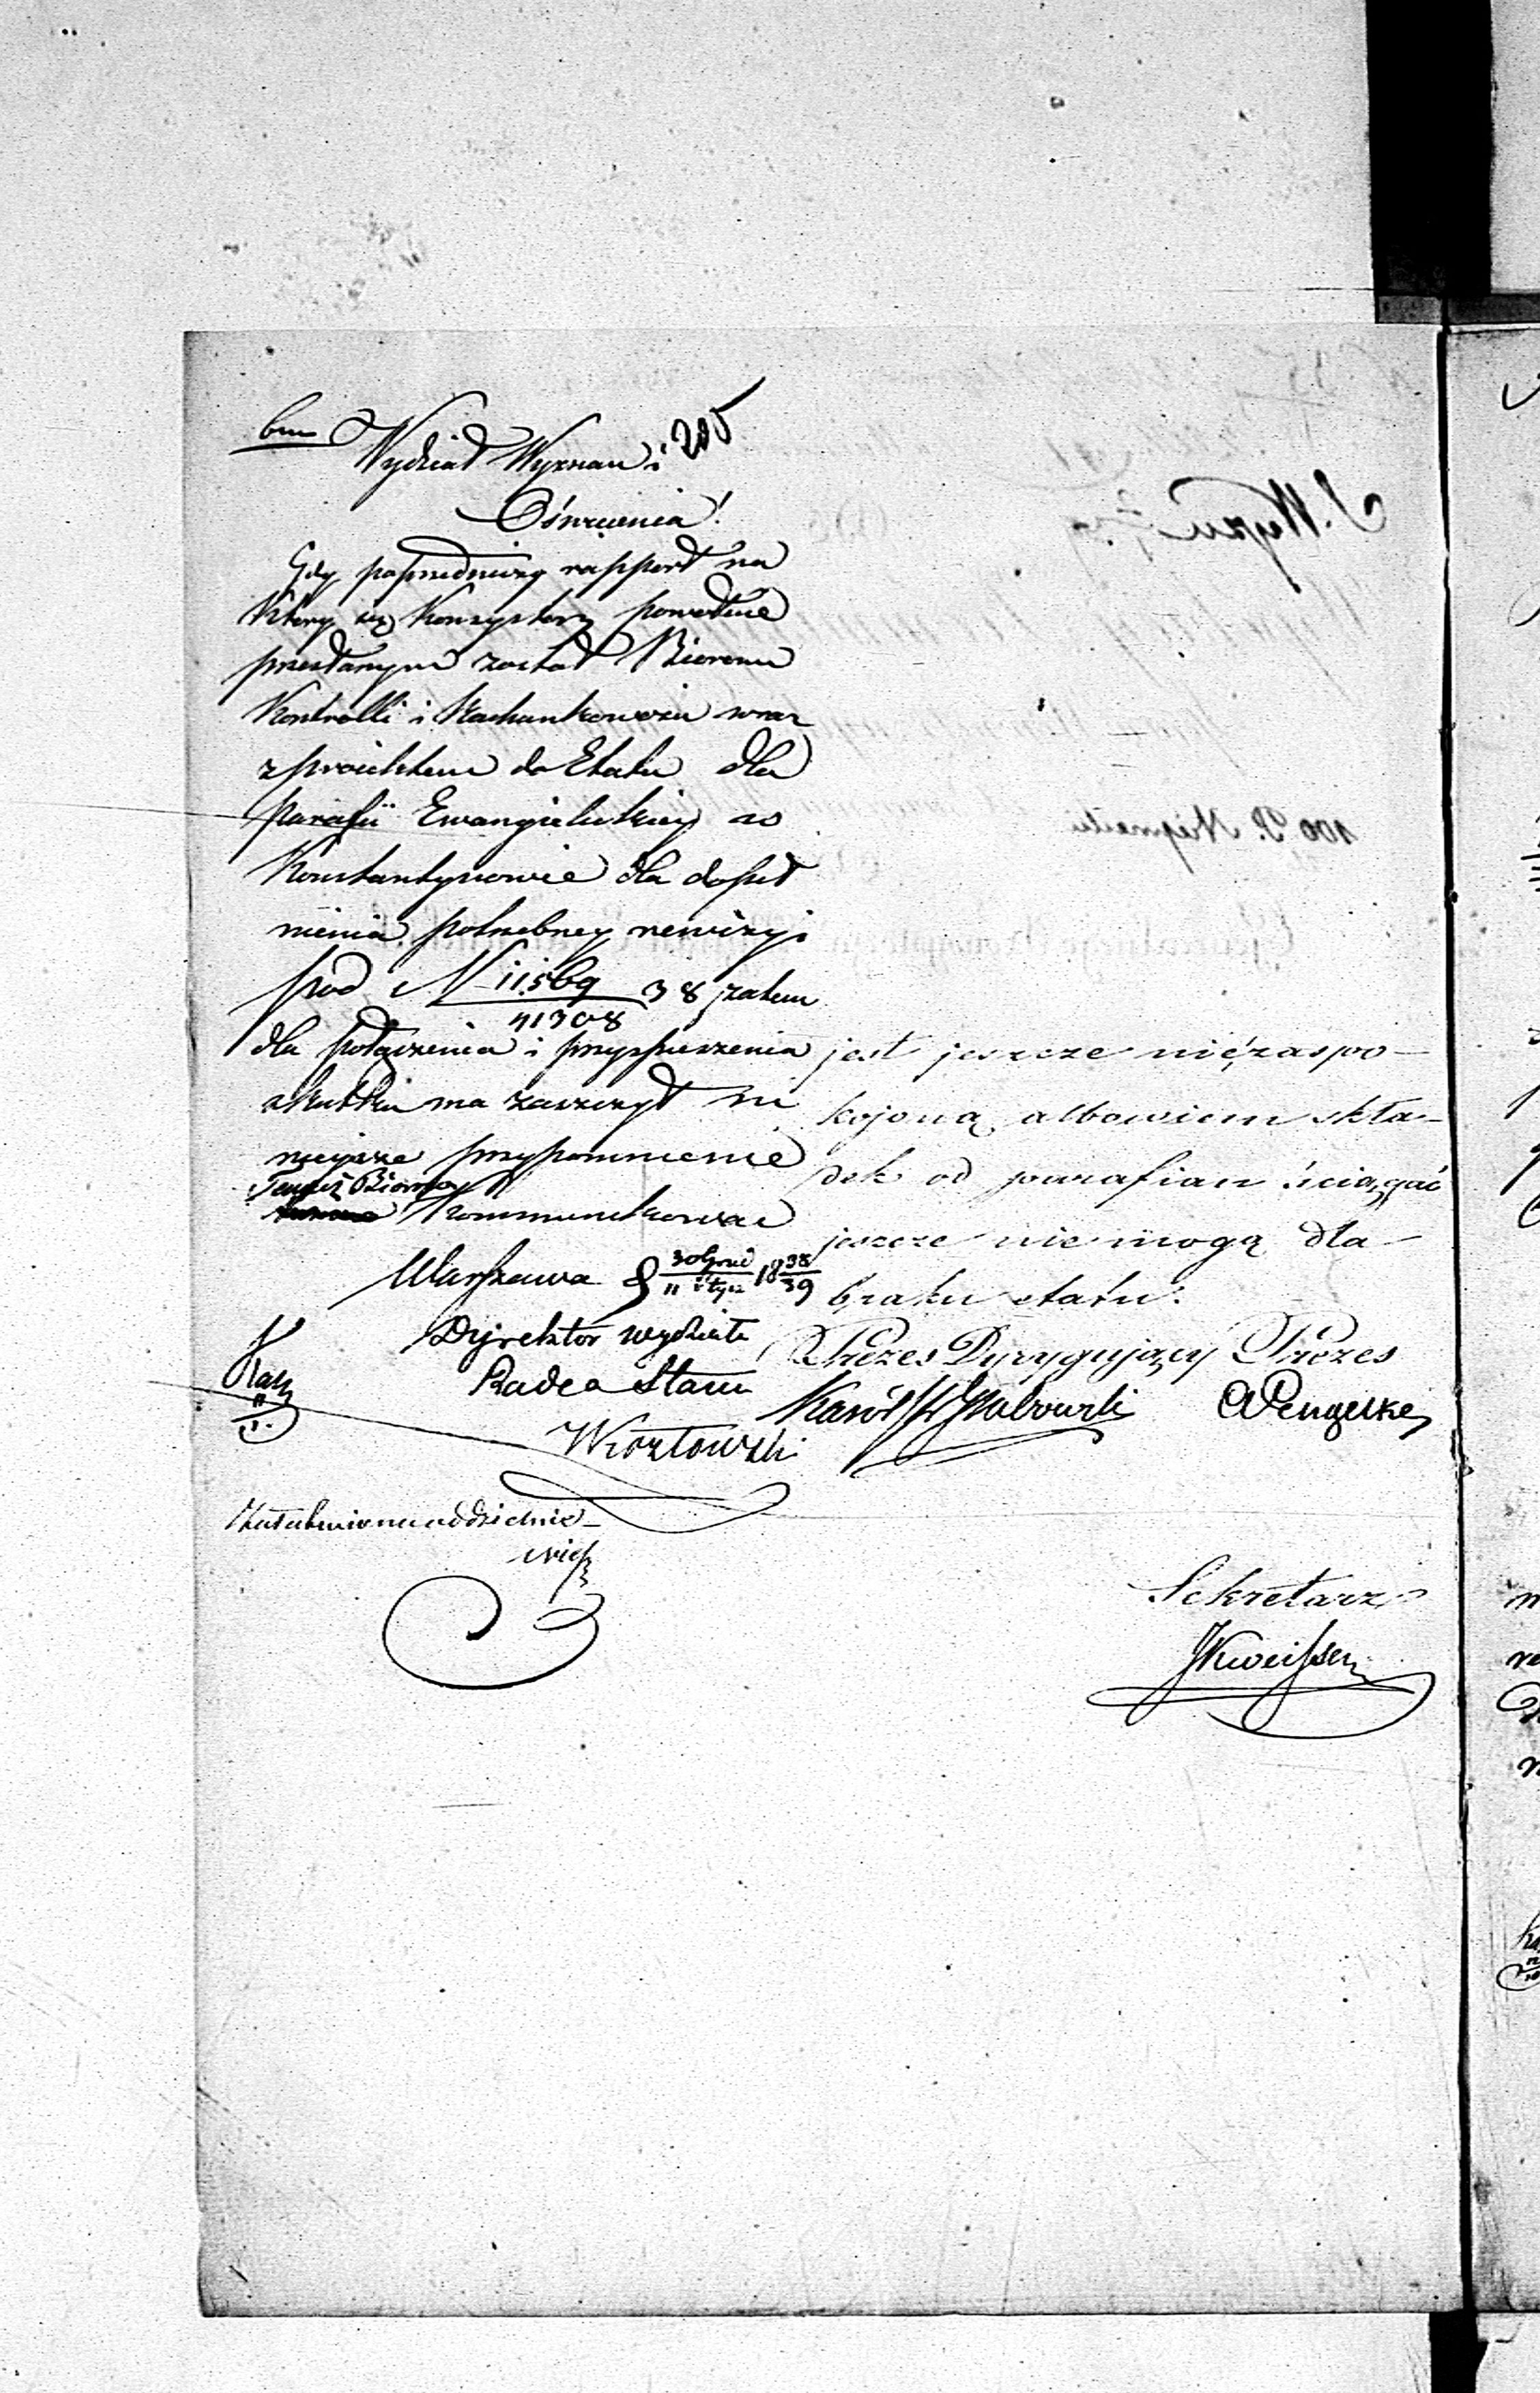 bm
Wydział Wyznań i
205
Oświecenia!
Gdy poprzedniczy rapport na
który się Konsystorz powołuie
przesłanym został Biorowu
Kontrolli i Rachunkowości wraz
z proiektem do Etatu dla
parafii Ewangielickiey w
Konstantynowie dla dopeł
nienia potrzebney rewizyi
pod N 11,569 38 zatem
41308
dla połączenia i przyspieszenia
skutku ma zaszczyt ni
nieysze przypomnienie
Temuż Biorowi
kommunikować
Warszawa d 30 Grud 1838
11 Stycz 39
Dyrektor Wydziału
Radca Stanu
Kozłowski
Załatwiono oddzielnie
jest jeszcze niezaspo-
kojoną, albowiem skła-
dek od parafian ściągać
jeszcze nie mogą dla
braku etatu.
Prezes Dyrygujący Prezes
Karól
Sekretarz